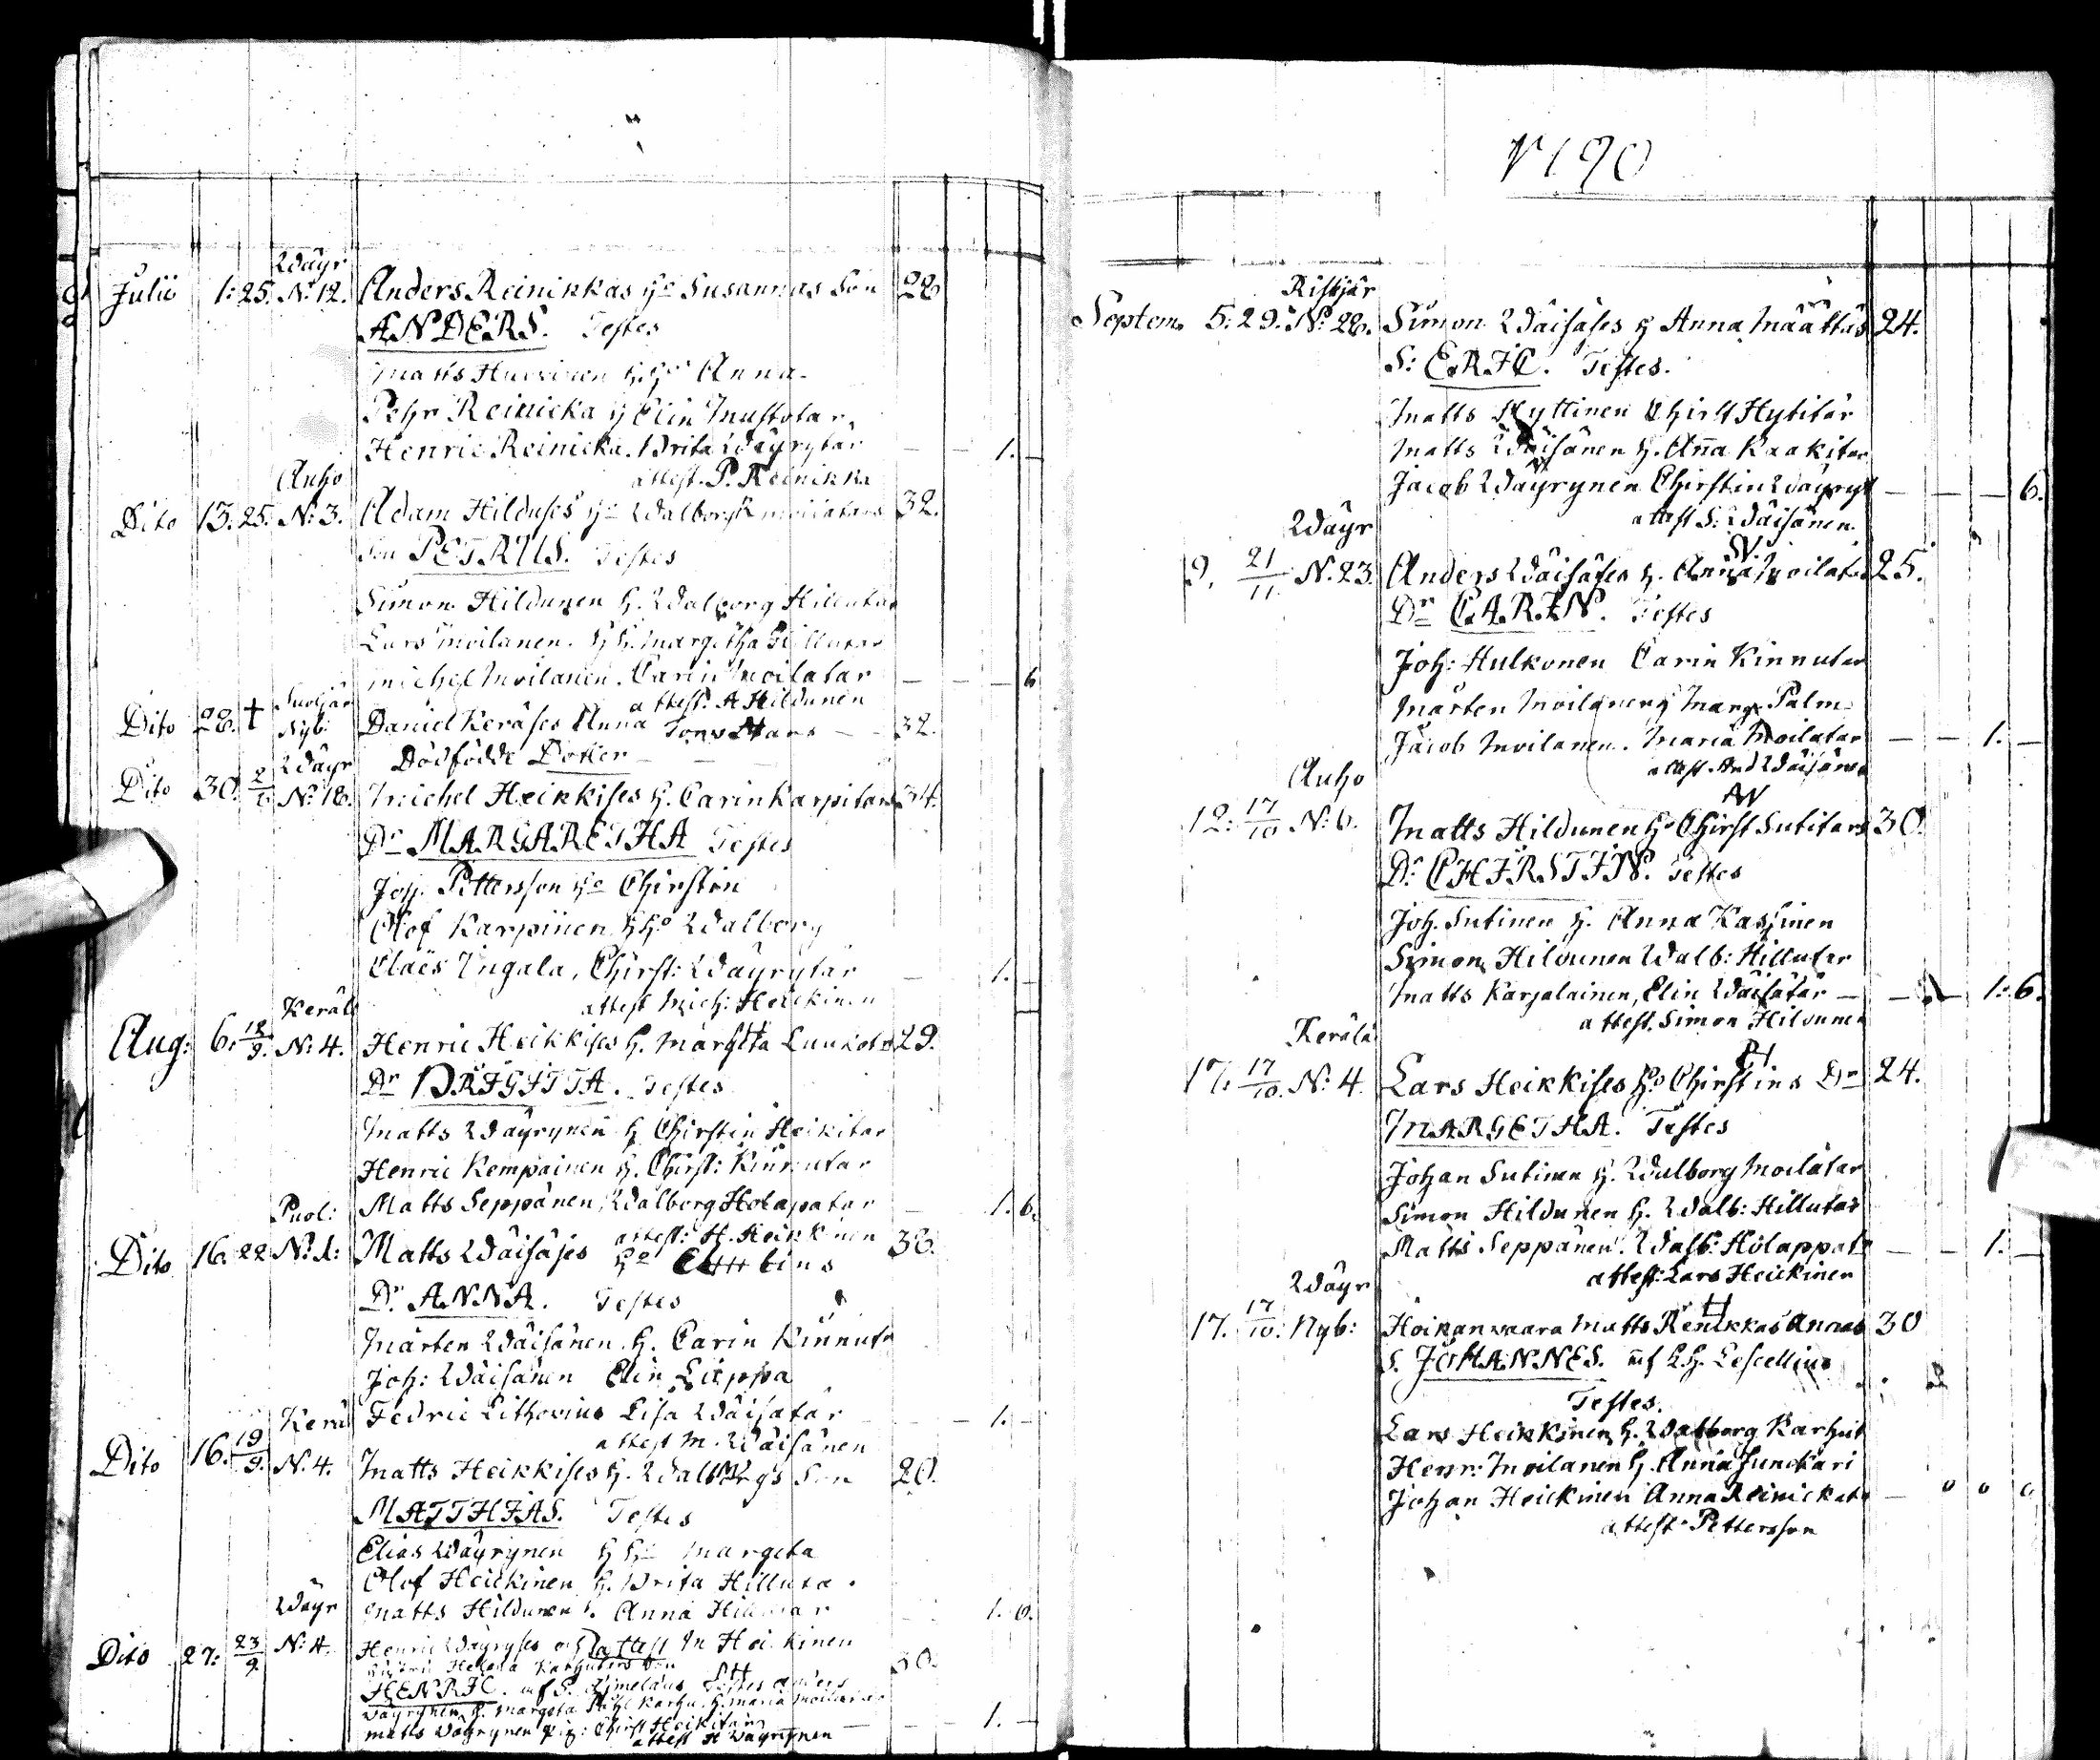 Wäyr
Julii 1: 25. N:12. Anders Reinikkas ho Susannas Son 28
ANDERS. Testes
Matts Hurvinen h ho Anna.
Pehr Reinicka h Elin Mustotar.
Henric Reinicka. Brita Wäyrytär — — 1. —
Auho attest. P. Reinikka
Dito 13. 25. N:3. Adam Hilduses ho Walborg Moilatars 32.
Son PETRUS. Testes
Simon Hildunen h. Walborg Hillutar
Lars Moilanen. h h. Margetha Hillutar
Michel Moilanen. Carin Moilatar — — — 6
Suoljär attest. A Hildunen
Dito 28. † Nyb: Daniel Keräses Anna 32.
Dödfödde Dotter — —
Wäyr
Dito 30. N:18. Michel Heikkises h. Carin Karpitars 34.
Dr MARGARETHA Testes
Joh. Pettersson ho Chirstin
Olof Karpinen h ho Walborg
Claës Ingala, Chirst: Wäyrytär — 1. —
Kerälä attest Mich: Heickinen
Aug: 6. 18/9. N:4. Henric Heikkises h. Margeta Luukotar 29.
Dr BRIGITTA. Testes
Matts Wäyrynen h Chirstin Heikitar
Henric Kempainen h. Chirst: Kinnutar
Matts Seppänen, Walborg Holapatar — 1. 6.
Puol: attest: H. Heikkinen
Dito 16. 22 N:1: Matts Wäisäses ho 38.
Dr ANNA. Testes
Mårten Wäisänen. h. Carin Kinnutr
Joh: Wäisänen Elin Lieppa
Fedric Lithovius Lisa Wäisätär — — 1. —
Kerä attest M. Wäisänen
Dito 16. 19/9. N:4. Matts Heikkises h. Walborgs Son 20.
MATTHIAS. Testes
Elias Wäyrynen h ho Margeta
Olof Heickinen h. Brita Hilluta.
Matts Hildunen h. Anna Hillutar 1. 6.
Wäyr
Dito 27: 23/9. N:4. Henric Wäyryses attest M Heickinen 30.
Hustru Helena Karhutars Son
HENRIC. Testes Anders
Wäyrynen h. Margeta Karhu. h. Maria Moilatar
Matts Wäyrynen Chirst Heikitär — — 1. —
attest H Wäyrynen
1790
Ristjär
Septem. 5: 29. N:28. Simon Wäisäses h Anna Määttäs 24.
S: ERIC. Testes.
Matts Hyttinen Chirst Hytitär
Matts Wäisänen h. Anna Kaakitar
Jacob Wäyrynen Chirstin Wäyryt — — — 6.
attest S: Wäisänen.
Wäyr
9. 21/11. N.23. Anders Wäisäses h. Anna Moilatars 25.
Dr CARIN. Testes
Joh: Hulkonen Carin Kinnutar
Mårten Moilanen h Marg. Palm.
Jacob Moilanen. Maria Moilatar — — 1. —
attest. And Wäisänen
Auho
12: 17/10 N:6. Matts Hildunen ho Chirst Sutitars 30.
Dr CHIRSTIN. Testes
Joh. Sutinen h. Anna Kassinen
Simon Hildunen Walb: Hillutar
Matts Karjalainen, Elin Wäisätär — — 1: 6.
attest. Simon Hildunen
Kerälä
17. 17/10. N:4 Lars Heikkises ho Chirstins Dr 24.
MARGETHA. Testes
Johan Sutinen h. Walborg Moilatar
Simon Hildunen h. Walb: Hillutar
Matts Seppänen. Walb: Holappatr — — 1. —
attest: Lars Heickinen
Wäyr
17. 17/10. Nyb: Hoikanvaara Matts Renikkas Annas 30
S. JOHANNES.
Testes.
Lars Heikkinen h. Walborg Karhut
Henr: Moilanen h. Anna Sunckari
Johan Heickinen Anna Reinickatr — 0 0 0
attest. Pettersson